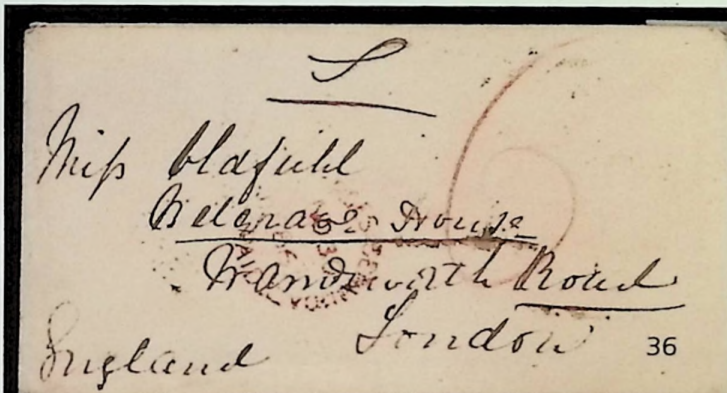 S
Miss Oldfield
Belgrave House
Wandsworth Road
London
England
36